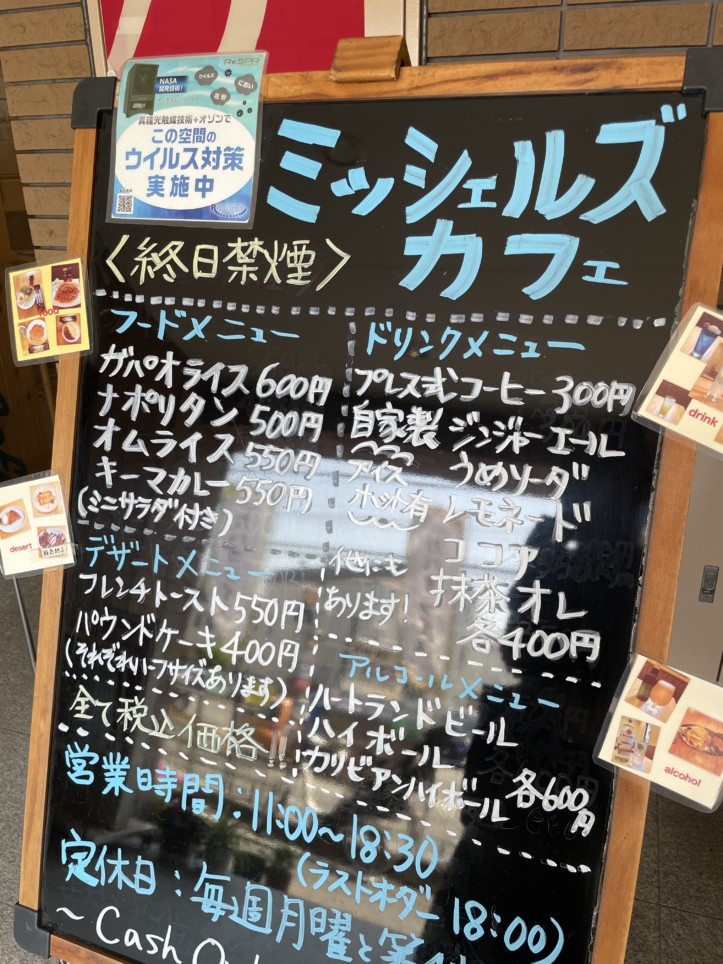 ReSPR
NASA
開発技術!
ウイルス
におい
花粉
異種光触媒技術+オゾンで
この空間の
ウイルス対策
実施中
ミッシェルズ
カフェ
〈終日禁煙〉
food
フードメニュー
ガパオライス 600円
ナポリタン 500円
オムライス 550円
キーマカレー 550円
(ミニサラダ付き)
desert
デザートメニュー
フレンチトースト 550円
パウンドケーキ 400円
(それぞれハーフサイズあります)
全て税込価格!!
drink
ドリンクメニュー
プレス式コーヒー 300円
自家製 ジンジャーエール
アイス
ホット有
うめソーダ
レモネード
ココア
抹茶オレ
他にも
あります!
各400円
アルコールメニュー
ハートランドビール
ハイボール
カリビアンハイボール
各600円
alcohol
営業時間:11:00~18:30
(ラストオダー 18:00)
定休日:毎週月曜と第
~Cash